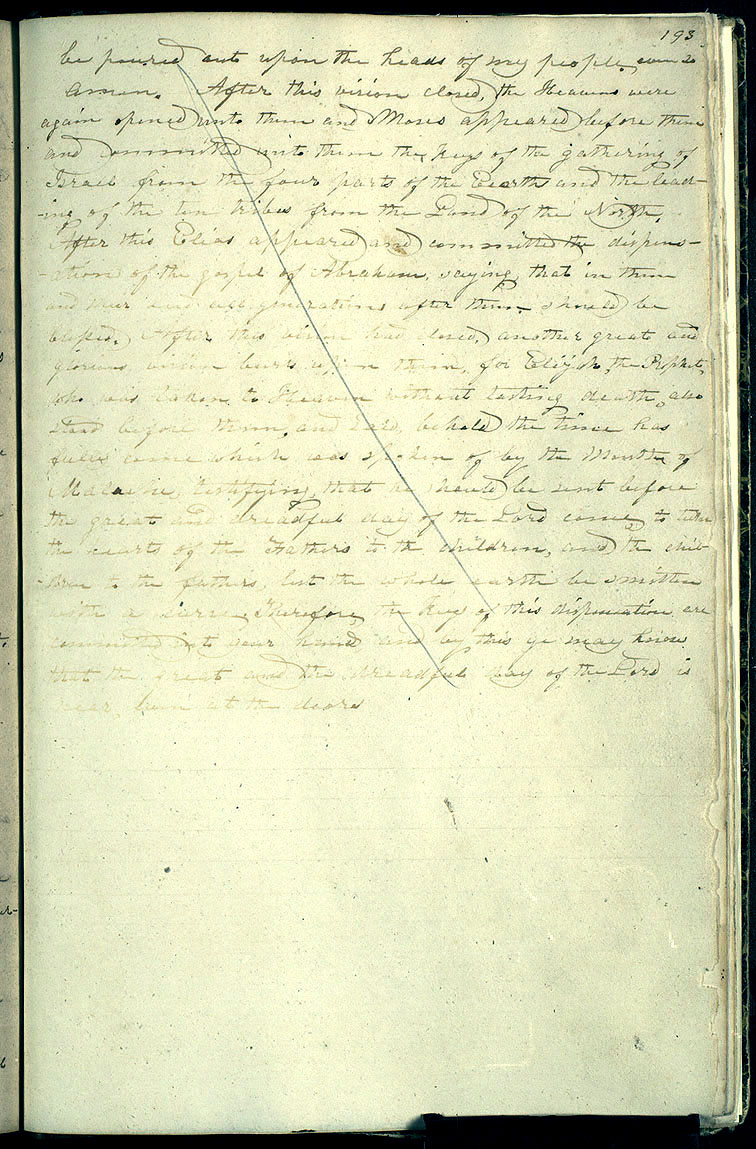 193
be poured out upon the heads of my people, even so
amen. After this vision closed, the Heavens were
again opened unto them and Moses appeared before them
and committed unto them the keys of the gathering of
Israel from the four parts of the Earth and the lead-
-ing of the ten tribes from the Land of the North.
After this Elias appeared and committed the dispen-
-ation of the gospel of Abraham, saying, that in them
and their seed all generations after them should be
blessed. After this vision had closed, another great and
glorious vision burst upon them, for Elijah, the Prophet,
who was taken to Heaven without tasting death, also
stood before them, and said, behold the time has
fully come which was spoken of by the Mouth of
Malachi, testifying, that he should be sent before
the great and dreadful day of the Lord come, to turn
the hearts of the Fathers to the children, and the chil-
-dren to the fathers, lest the whole earth be smitten
with a curse. Therefore, the keys of this dispensation are
committed into your hands and by this ye may know
that the great and the dreadful day of the Lord is
near, even at the doors